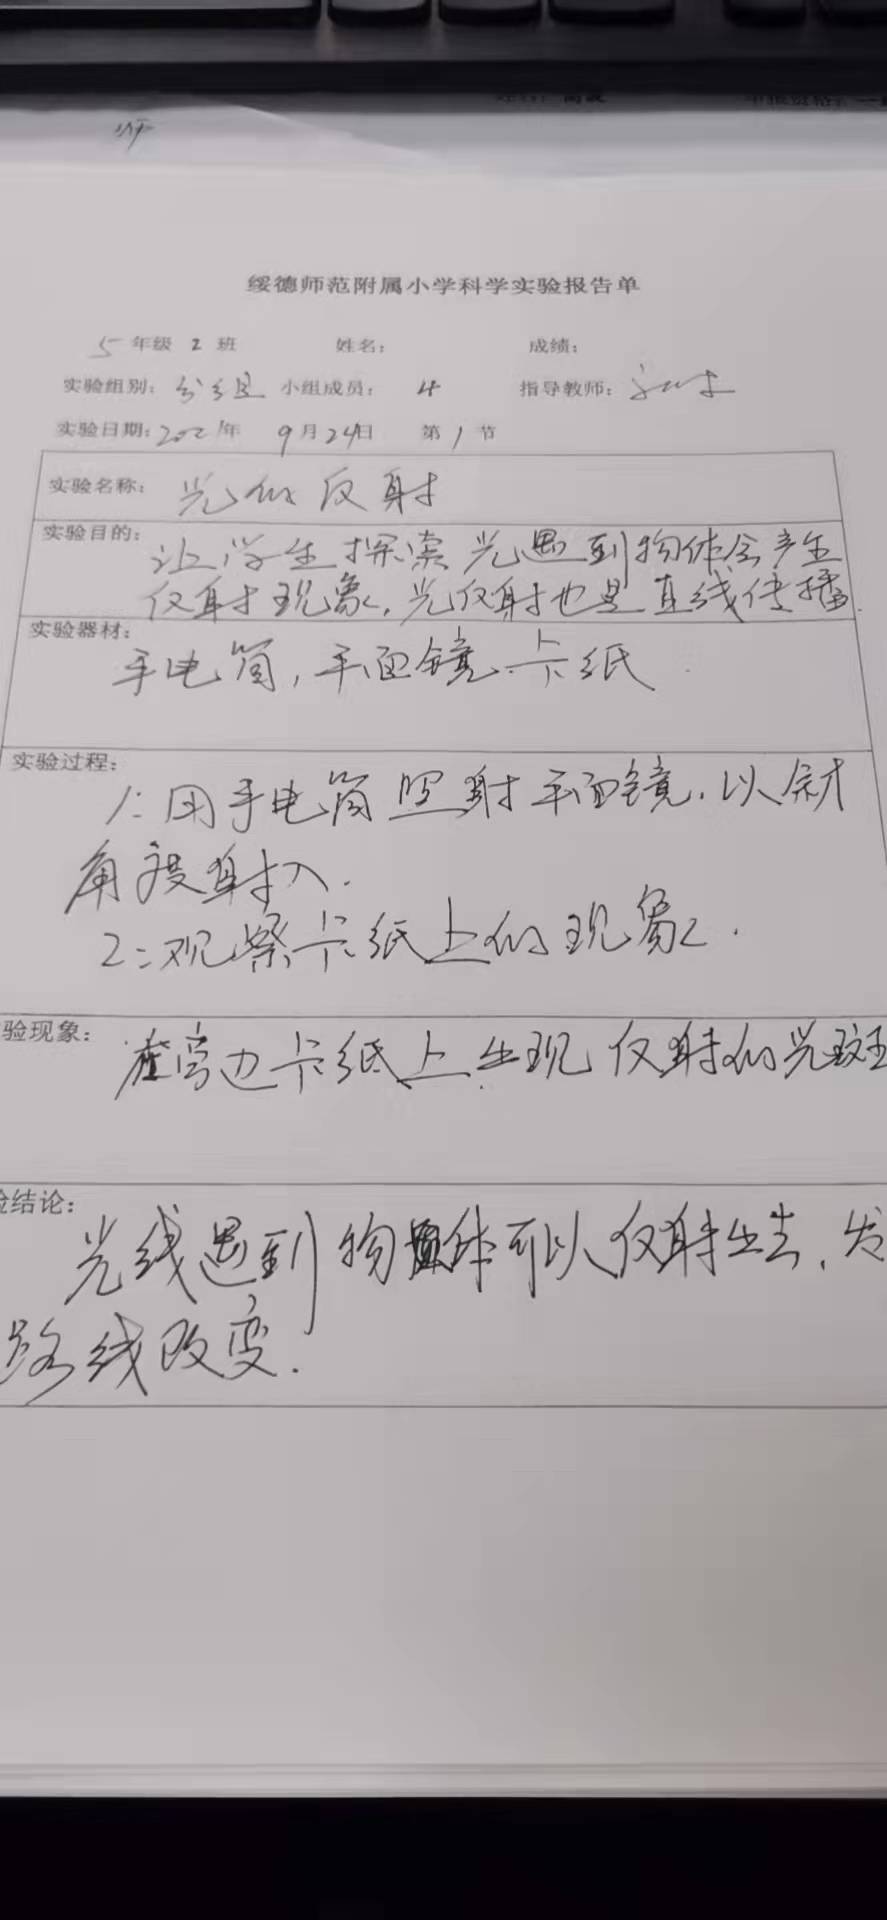 绥德师范附属小学科学实验报告单
5 年级 2 班 姓名: 成绩:
实验组别: 分组 小组成员: 4 指导教师:
实验日期: 2021年 9月24日 第1节
实验名称: 光的反射
实验目的: 让学生探索光遇到物体会产生
反射现象,光反射也是直线传播.
实验器材:
手电筒,平面镜.卡纸.
实验过程:
1:用手电筒照射平面镜.以斜
角度射入.
2:观察卡纸上的现象.
验现象: 在旁边卡纸上出现反射的光斑
验结论:
光线遇到物体可以反射出去.发
路线改变.